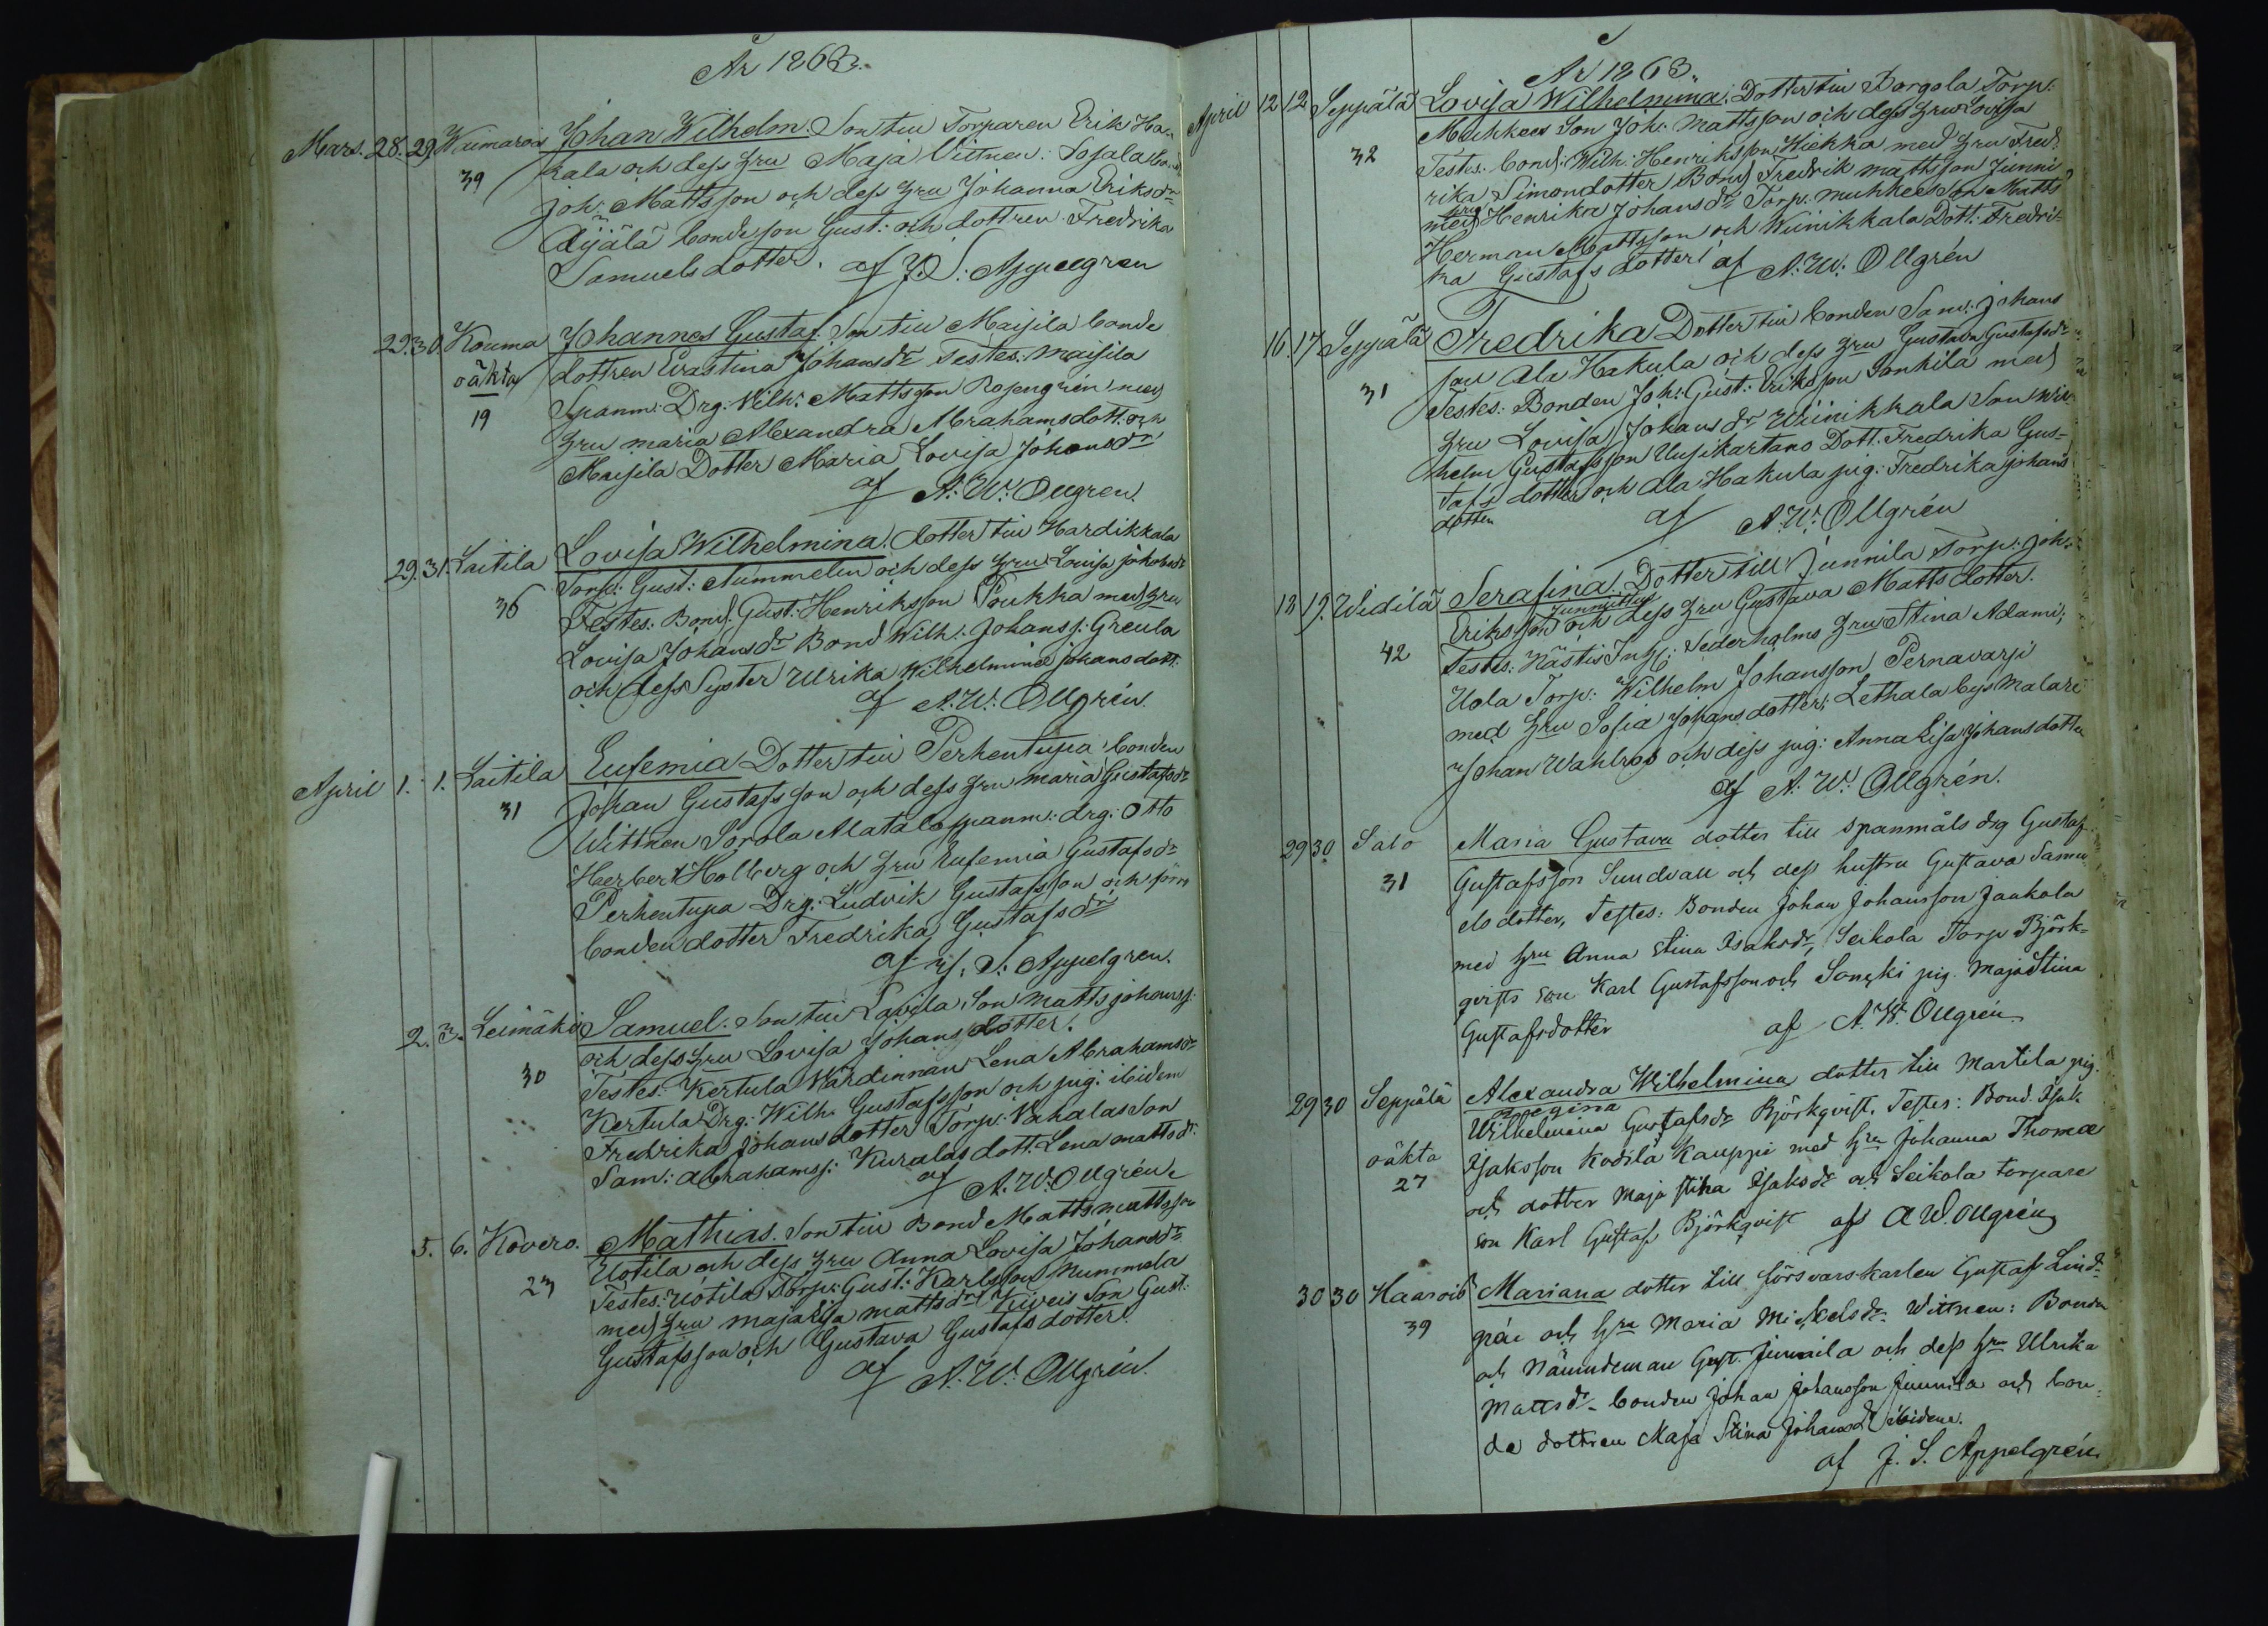 År 1863.
Mars. 28. 29. Waimaron Johan Wilhelm. Son till Torparen Erik Ha-
39 kala och dess hru Maja Vittnen: Sojala bond
Joh: Mattsson och dess hru Johanna Eriksdr
Äijälä bondeson Gust: och dottren Fredrika
Samuelsdotter. af J. S. Appelgren
29. 30. Kouma Johannes Gustaf. Son till Maijila bonde
oäkta dottren Evastina Johansdr Testes. Maijila
19 Spanm: Drg: Wilh: Mattsson Rosengren med
hru Maria Alexandra Abrahamsdott: och
Maijila Dotter Maria Lovisa Johansdr
af A. W. Ollgren.
29. 31. Laitila Lovisa Wilhelmina. dotter till Hardikkala
36 Torp: Gust: Nummelin och dess hru Lovisa
Testes: Bond. Gust: Henriksson Poukka med hru
Lovisa Johansdr Bond Wilh: Johanss: Greula
och dess Syster Ulrika Wilhelmina Johansdott:
af A. W. Ollgrén.
April 1. 1. Laitila Eufemia Dotter till Perhentupa bonden
31 Johan Gustafsson och dess hru Maria Gustafsdr
Wittnen Sorola Alatalo spanm: drg: Otto
Herbert Holberg och hru Eufemia Gustafsdr
Perhentupa Drg: Ludvik Gustafsson och
bonden dotter Fredrika Gustafsdr
af J. S. Appelgren.
2. 3. Leimäki Samuel. Son till Lavila Son Matts Johanss:
30 och dess hru Lovisa Johansdotter.
Testes. Kertula Wärdinnan Lena Abrahamsdr
Kertula Drg: Wilh. Gustafsson och pig: ibidem
Fredrika Johansdotter Torp: Vahalas Son
Sam: Abrahamss: Kuralas dott: Lena Mattsdr.
af A. W. Ollgrén.
5. 6. Kovero. Mathias. Son till Bond Matts Mattsson
23 Uotila och dess hru Anna Lovisa Johansdr
Testes: Uotila Torp: Gust: Karlsson Nummela
med hru Maja Lisa Mattsdr Son Gust:
Gustafsson och Gustava Gustafsdotter.
af A. W. Ollgrén.
År 1863.
April 12 12 Seppälä Lovisa Wilhelmina. Dotter till Borgola Torp:
32 Muhkees Son Joh: Mattsson och dess hru Lovisa
Testes. bond: Wilh: Henriksson Hiekka med hru Fred-
rika Simondotter Bond Fredrik Mattsson Junni
med hru Henrika Johansdr Torp. Muhkees Son Matts
Herman Mattsson och Wiinikkala Dott: Fredri-
ka Gustafsdotter af A. W. Ollgrén
16. 17 Seppälä Fredrika Dotter till bonden Sam: Johans
31 son Ala Hakula och dess hru Gustava Gustafsdr
Testes: Bonden Joh: Gust: Eriksson Sonkila med
hru Lovisa Johansdr Wiinikkala Son Wil-
helm Gustafsson Uusikartano Dott. Fredrika Gus-
tafsdotter och Ala Hakula pig: Fredrika Johans
dotter af A. W. Ollgrén
18 19. Widilä Serafina. Dotter till Junnila Torp: Joh:
42 Eriksson och dess hru Gustava Mattsdotter.
Testes: Kästis Inh: Sederholms hru Stina Adami,
Uola Torp: Wilhelm Johansson Pernavarsi
med hru Sofia Johansdotter, Lethala bys Malare
Johan Wahlros och dess pig: Anna Lisa Johansdotter
af A. W. Ollgrén.
29 30 Salo Maria Gustava dotter till spanmåls drg Gustaf
31 Gustafsson Sundvall och dess hustru Gustava Samu-
elsdotter, Testes: Bonden Johan Johansson Jaakola
med hru Anna Stina Isaksdr, Seikola Torp Björk-
qvists son Karl Gustafsson och Sonkki pig. Maja Stina
Gustafsdotter af A. W. Ollgrén
29 30 Seppälä Alexandra Wilhelmina dotter till Martila pig.
Regina
oäkta Wilhelmina Gustafsdr Björkqvist. Testes: Bond. Isak
27 Isaksson Kodila Kauppi med hru Johanna Thomæ
och dotter Maja Stina Isaksdr och Seikola torpare
son Karl Gustaf Björkqvist af A W. Ollgrén
30 30 Haarois Mariana dotter till försvarskarlen Gustaf Lind-
39 grén och hru Maria Mickelsdr. Wittnen: Bonden
och Nämndeman Gust. Junnila och dess hru Ulrika
Mattsdr. bonden Johan Johansson Junnila och bon-
de dottren Maja Stina Johansdr ibidem.
af J. S. Appelgrén